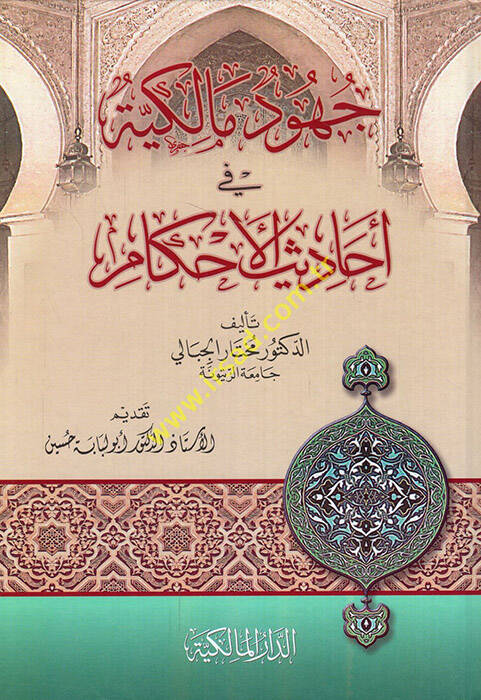 جُهُودٌ مَالِكِيَّةٌ
فِي
أَحَادِيثِ الأَحْكَامِ
تَأليف
الدّكتُور مختَار الجبَالي
جَامِعَة الزّيتُونَة
تَقديْم
الأستاذ الدكتور أبو لبابة حُسين
www.
.com.tr
الدَّارُ المَالِكِيَّة